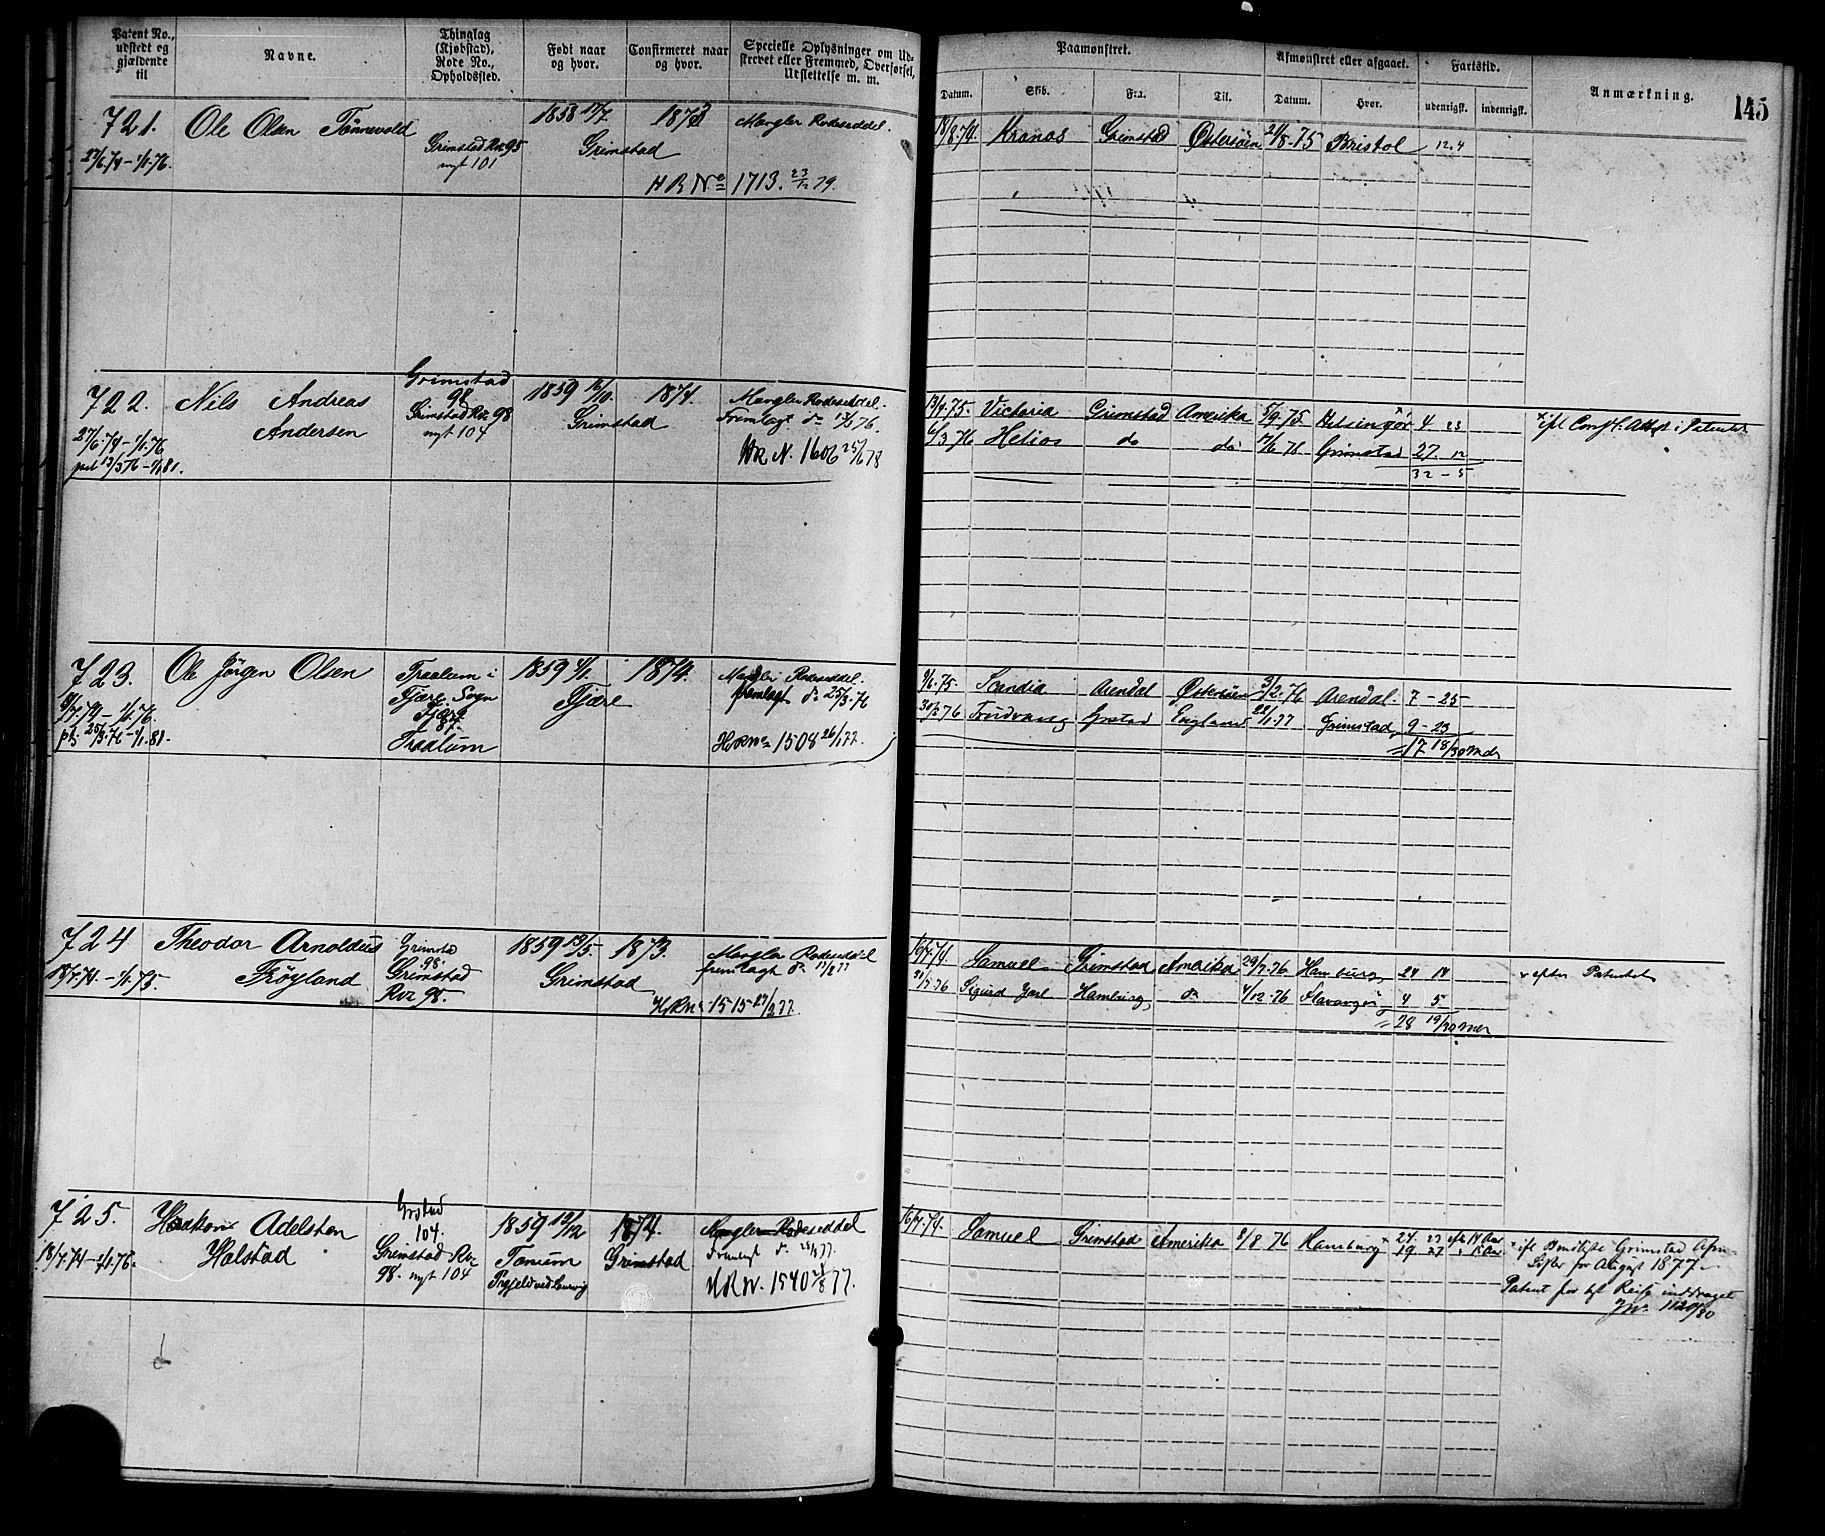 Patent No., udstedt og gjældende til
Navne.
Thinglag (Kjøbstad), Rode No., Opholdssted.
Født naar og hvor.
Confirmeret naar og hvor.
Specielle Oplysninger om Udskrevet eller Fremmed, Overførsel, Udslettelse m. m.
Paamønstret.
Afmønstret eller afgaaet.
Fartstid.
Anmærkning.
145
Datum.
Skib.
Fra.
Til.
Datum.
Hvor.
udenrigsk.
indenrigsk.
721.
Ole Olsen Tønnevold
1858 17/7
Grimstad
1873
Mangler Rodeseddel.
27/6.74-1/1.76.
Grimstad Rx 95
nyt 101
H R No 1713. 23/12 79.
18/8.74
Kranos
Grimstad
Østersøen
24/8.75
Bristol
12.4
722.
Nils Andreas
Andersen
Grimstad
98
Grimstad Rx 98
nyt 104
1859 16/10.
Grimstad
1874.
Mangler Rodeseddel.
Fremlagt do 13/3 76.
HR N. 1606 25/6 78
27/6.74-1/1.76
13/3 76-1/1 81.
13/4.75.
Victoria
Grimstad
Amerika
5/9.75
Helsingør
4 23
6/3 76
Helios
do
do
17/6 78
Grimstad
27. 12
32-5
723.
Ole Jørgen Olsen
Traalum i
Fjære Sogn
Fjære
87.
Traalum
1859 4/1.
Fjære
1874.
Mangler Rodeseddel.
fremlagt do 25/3.76
HRNo 1508 26/1 77.
9/7.74-1/1.76.
25/3.76-1/1.81.
9/6.75.
Scandia
Arendal
Østersøen
3/2.76
Arendal.
7-25
30/3 76
Trudvang
Grstad
England
22/1.77
Grimstad
9-23
=17 18/30 Mdr
724
Theodor Arnoldus
Frøyland
Grimstad
98.
Grimstad
Rx 98.
1859 13/5.
Grimstad
1873.
Mangler Rodeseddel
fremlagt do 17/2 77
HRNo 1515 27/2 77.
18/7.74-1/1.78.
16/7.74.
Samuel
Grimstad
Amerika
29/7.76
Hamburg
24 14
x efter Patentet
Sigurd Jarl
Hamburg,
do
4/12.76
Stavanger
4 5
=28 19/30 Mdr
725.
Haakon Adelsten
Halstad
Grstad
104.
Grimstad Rx
98. nyt 104
1859 12/12
Tanum
Prgjeld ved Laurvig
1874
Grimstad
Mangler Rodeseddel
Fremlagt do
HRN. 1540 77.
18/7.74-1/1.76.
16/7.74.
Samuel
Grimstad
Amerika
8/8 76
Hamburg
x 24. 23 efter 14 Aar
19 27 " 15 Aar
Grimstad
for August 1877.
Patent for Reise inddraget
Jno. 1120/80